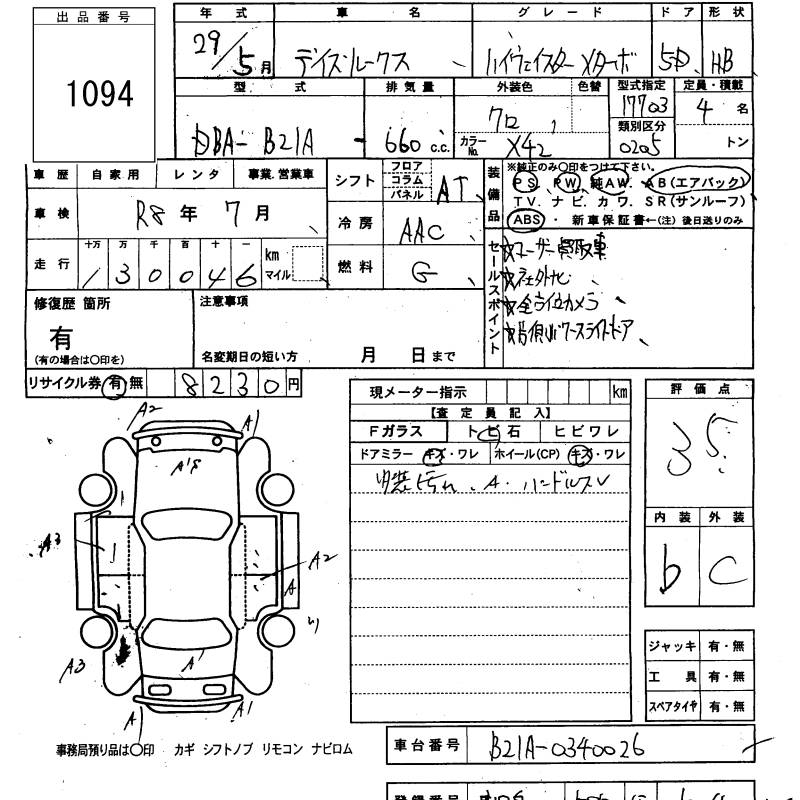 出品番号
1094
年式 車名 グレード ドア 形状
29/5月 デイズルークス ハイウェイスター Xターボ 5D HB
型式 排気量 外装色 色替 型式指定 定員・積載
DBA- B21A 660 c.c. クロ 17703 4 名
カラーNo. X42 類別区分 0205 トン
車歴 自家用 レンタ 事業、営業車
車検 R8年 7月
走行 十万 万 千 百 十 一
130046 km マイル
シフト フロア コラム パネル AT
冷房 AAC
燃料 G
装備品
※純正のみ○印をつけて下さい。
PS. PW. 純AW. AB(エアバック)
TV. ナビ. カワ. SR(サンルーフ)
ABS ・ 新車保証書←(注)後日送りのみ
セールスポイント
☆ユーザー買取車
☆社外ナビ
☆全方位カメラ
☆両側パワースライドドア
修復歴 箇所
有
(有の場合は○印を)
注意事項
名変期日の短い方 月 日まで
リサイクル券 有 無 8230円
現メーター指示 km
【査定員記入】
Fガラス トビ石 ヒビワレ
ドアミラー キズ・ワレ ホイール(CP) キズ・ワレ
内装汚れ、A. ハンドルスレ
評価点
3.5
内装 外装
b C
A2 A1
A'S
A3
A2
A
A3 A'
A1 A1
ジャッキ 有・無
工具 有・無
スペアタイヤ 有・無
事務局預り品は○印 カギ シフトノブ リモコン ナビロム
車台番号 B21A-0340026
登録番号